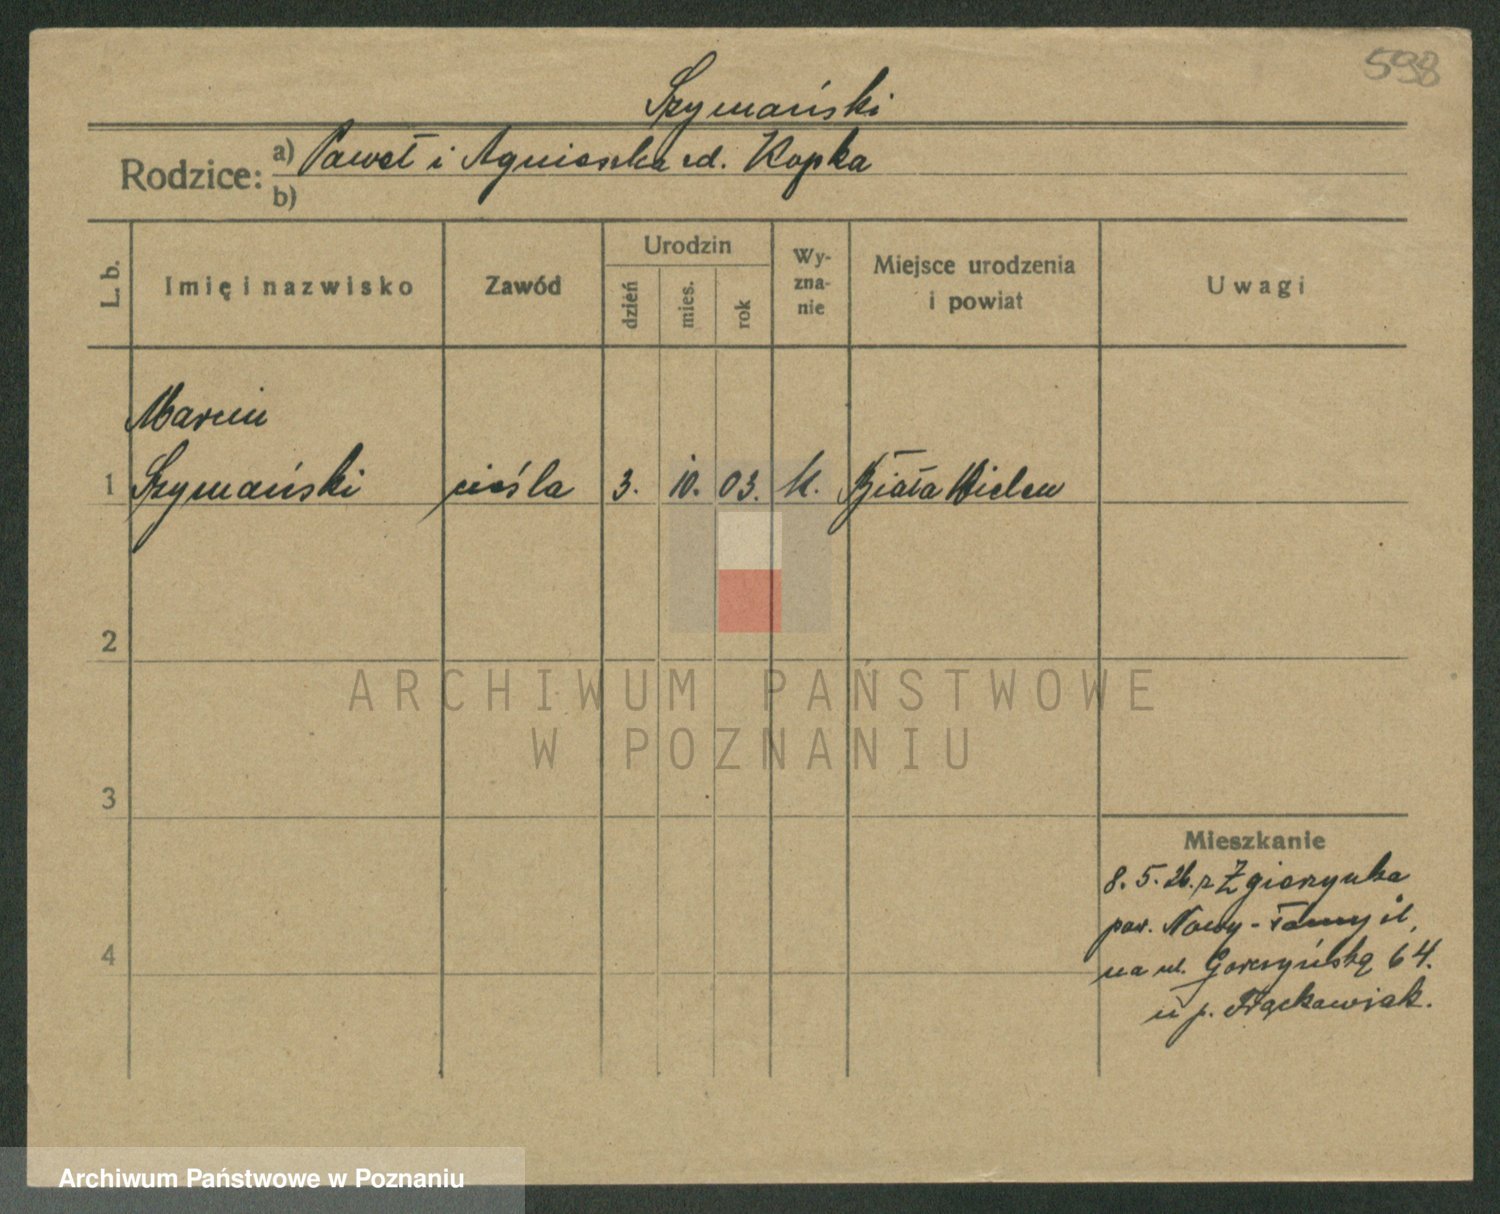 598
Szymański
Rodzice: a) Paweł i Agnieszka zd. Kopka
b)
L. b.
Imię i nazwisko
Zawód
Urodzin
dzień
mies.
rok
Wy-
zna-
nie
Miejsce urodzenia
i powiat
Uwagi
Marcin
1 Szymański cieśla 3. 10. 03. k. Biała Wieleń
2
ARCHIWUM PAŃSTWOWE
W POZNANIU
3
Mieszkanie
8. 5. 26. z Zgierzynka
pow. Nowy-Tomyśl,
4
na ul. Gorczyńską 64.
u p. Frąckowiak.
Archiwum Państwowe w Poznaniu